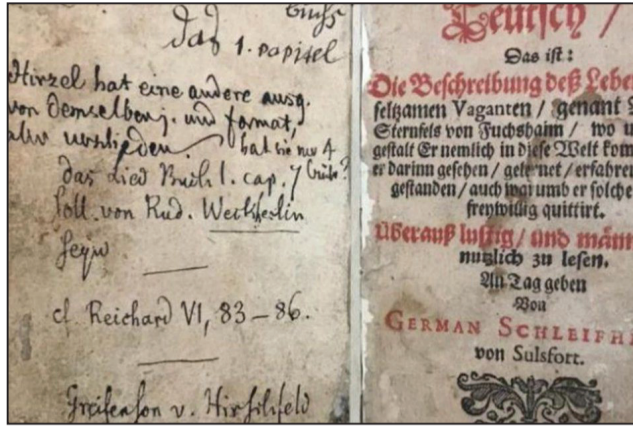 Buchs
das 1. papitel
Hirzel hat eine andere ausg.
von demselben j. und format,
aber verschieden. hat sie nur 4
Bücher?
das Lied Buch 1. cap. 7
soll von Rud. Weckherlin
seyn
cf. Reichard VI, 83–86.
Greifenson v. Hirschfeld
Teutsch /
Das ist:
Die Beschreibung deß Lebe
seltzamen Vaganten / genant
Sternfels von Fuchshaim / wo u
gestalt Er nemlich in diese Welt kom
er darinn gesehen / gelernet / erfahre
gestanden / auch warumb er solche
freywillig quittirt.
Überauß lustig / und männ
nutzlich zu lesen.
An Tag geben
Von
GERMAN SCHLEIFHE
von Sulsfort.